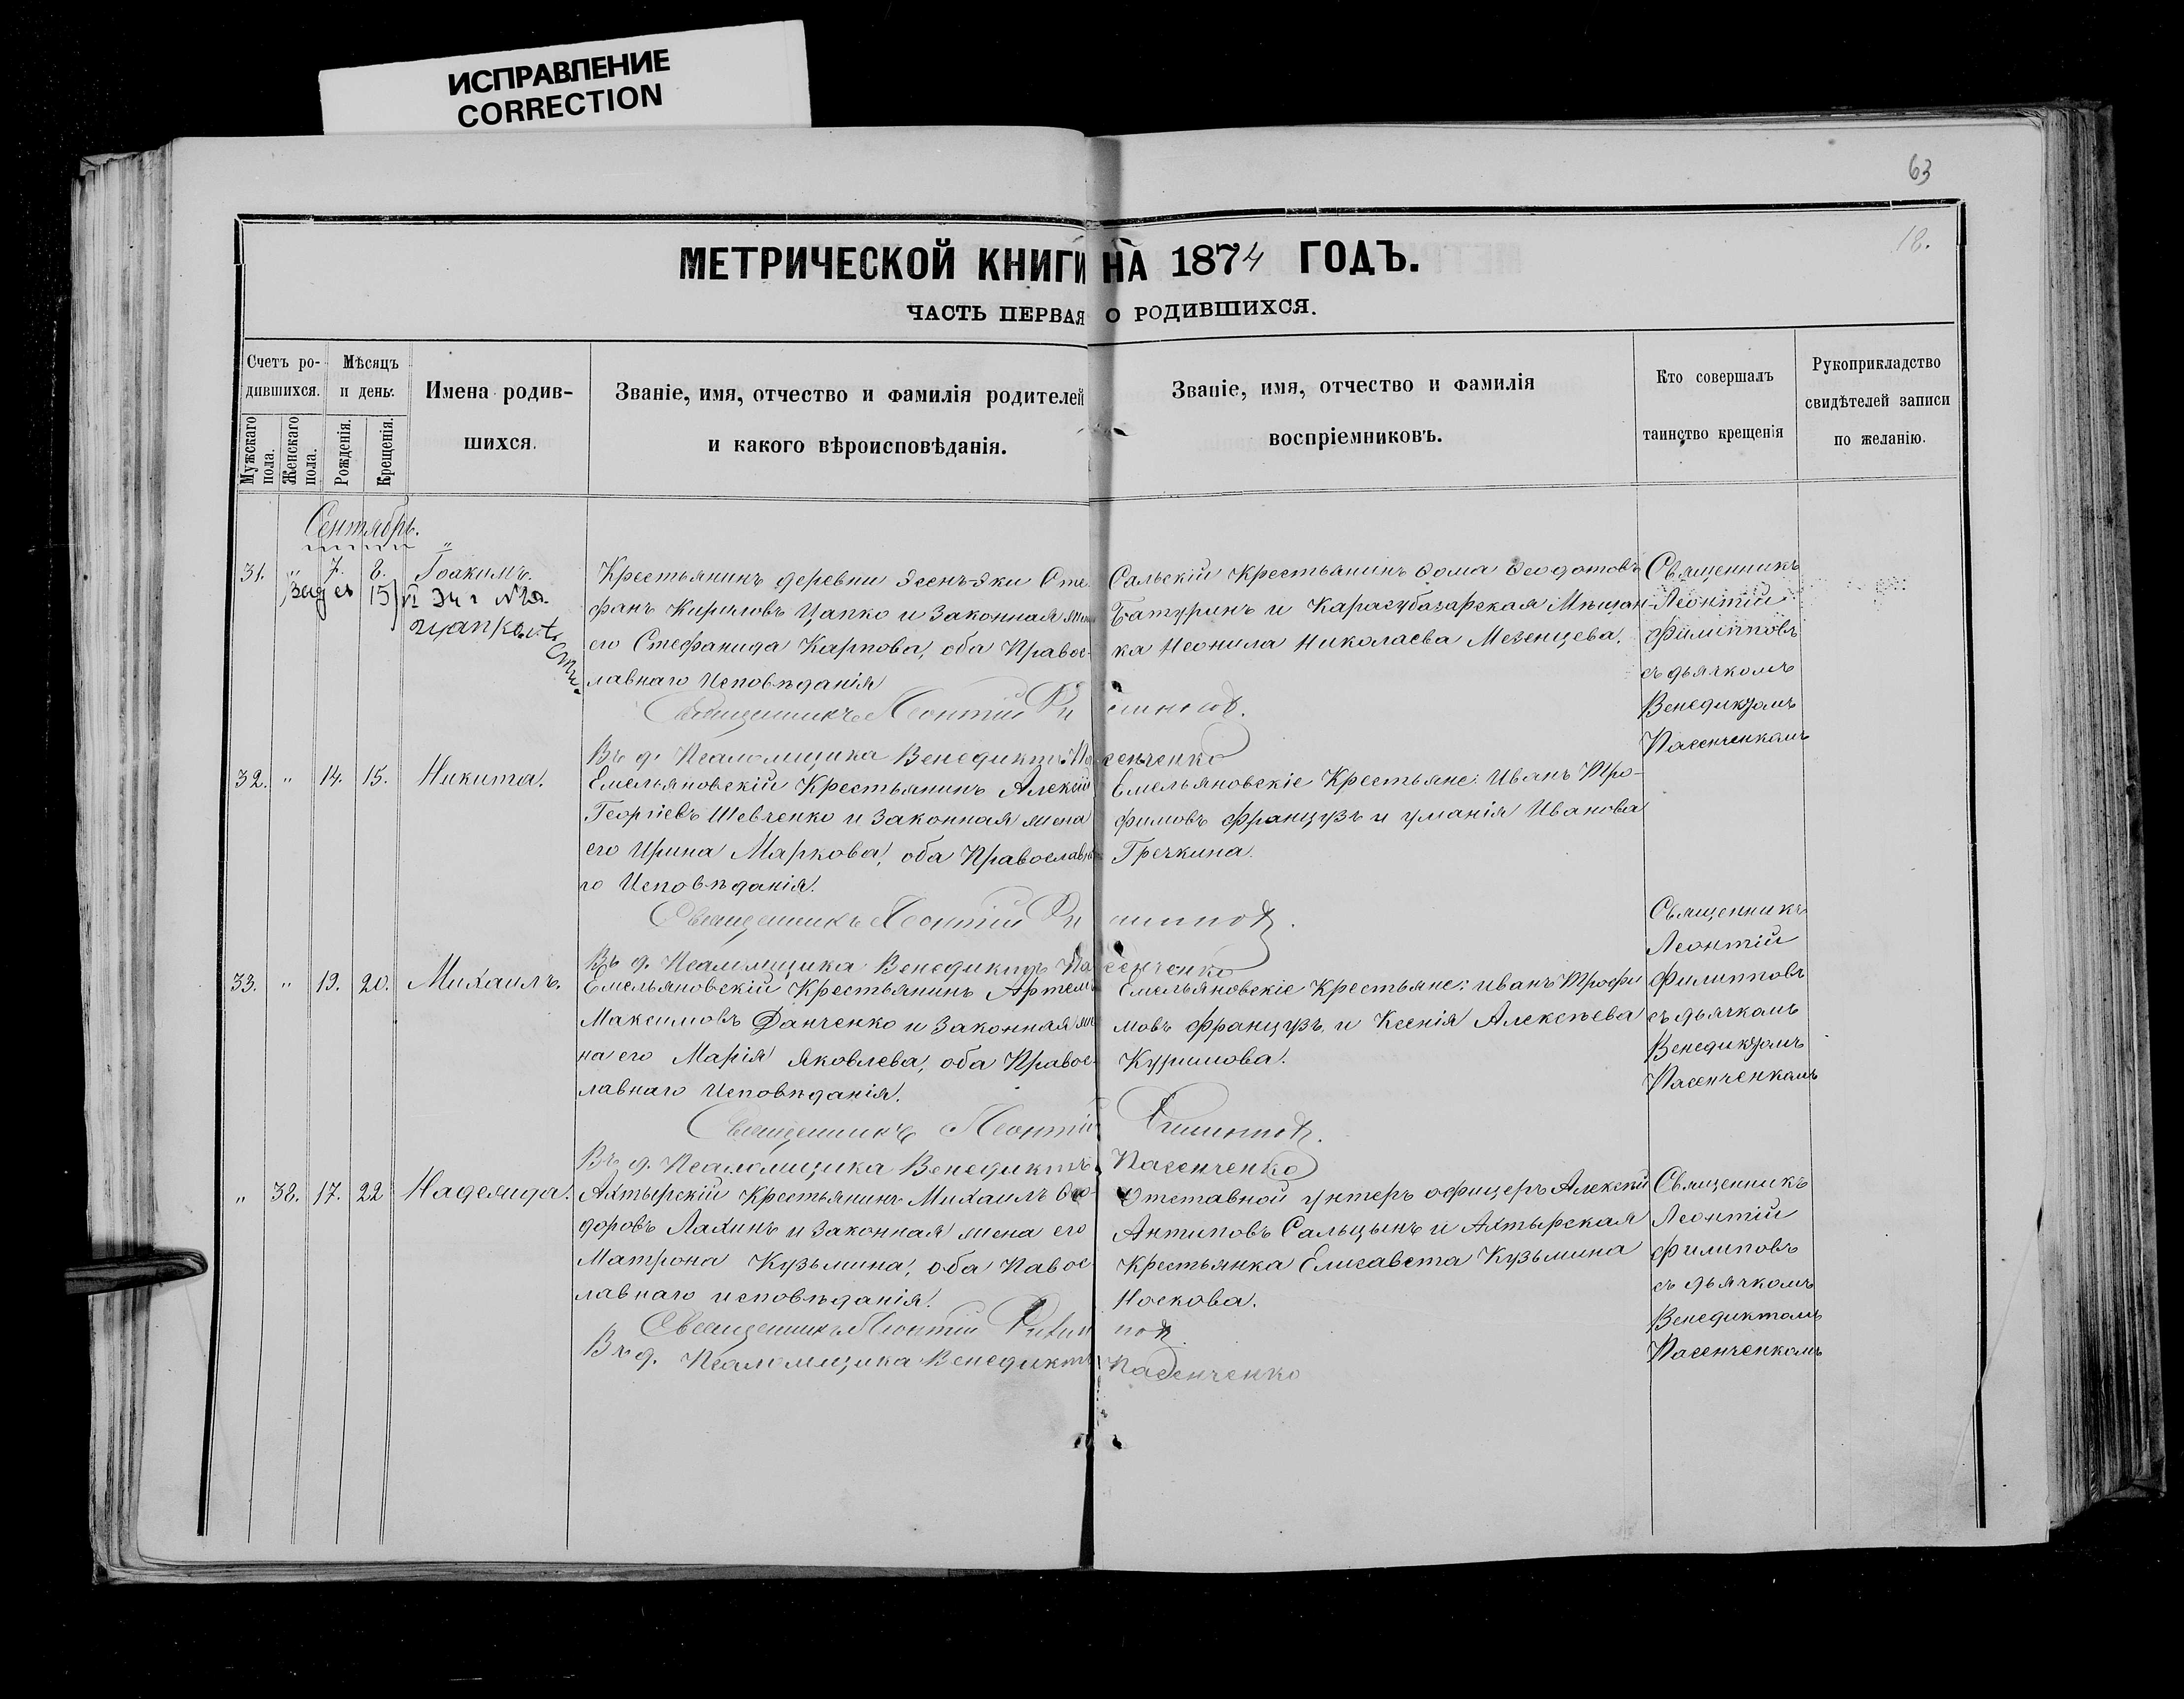 ИСПРАВЛЕНИЕ
CORRECTION
63
18.
МЕТРИЧЕСКОЙ КНИГИ НА 1874 ГОДЪ.
ЧАСТЬ ПЕРВАЯ О РОДИВШИХСЯ.
Счетъ ро-
дившихся.
Мужскаго пола.
Женскаго пола.
Мѣсяцъ
и день.
Рожденія.
Крещенія.
Имена родив-
шихся.
Званіе, имя, отчество и фамилія родителей
и какого вѣроисповѣданія.
Званіе, имя, отчество и фамилія
воспріемниковъ.
Кто совершалъ
таинство крещенія
Рукоприкладство
свидѣтелей записи
по желанію.
Сентябрь.
31. " 7. 8. Іоакимъ.
15
Крестьянинъ деревни Ясенъ-Яки Сте-
фанъ Кириловъ Цапко и законная жена
его Стефанида Карпова, оба Правос-
лавнаго Исповѣданія
Сальскій Крестьянинъ Ѳома Ѳеодотовъ
Батуринъ и Карасубазарская Мѣщан-
ка Неонила Николаева Мезенцева.
Священникъ
Леонтій
Филипповъ
съ дьячкомъ
Венедиктомъ
Пасенченкомъ
Священникъ Леонтій Филиповъ.
Въ д. Псаломщика Венедиктъ Пасенченко
32. " 14. 15. Никита.
Емельяновскій Крестьянинъ Алексій
Георгіевъ Шевченко и законная жена
его Ирина Маркова, оба Православна-
го Исповѣданія.
Емельяновскіе Крестьяне: Иванъ Тро-
фимовъ Французъ и Иванова
Гречкина.
Священникъ Леонтій Филиповъ.
Въ д. Псаломщика Венедиктъ Пасенченко
33. " 19. 20. Михаилъ.
Емельяновскій Крестьянинъ Артемъ
Максимовъ Данченко и законная же-
на его Марія Яковлева, оба Правос-
лавнаго Исповѣданія.
Емельяновскіе Крестьяне: Иванъ Трофи
мовъ Французъ и Ксенія Алексѣева
Курилова.
Священникъ
Леонтій
Филипповъ
съ дьячкомъ
Венедиктомъ
Пасенченкомъ
Священникъ Леонтій Филиповъ.
Въ д. Псаломщика Венедиктъ Пасенченко
" 38. 17. 22 Надежда.
Ахтырскій Крестьянинъ Михаилъ Ѳео-
доровъ Лахинъ и законная жена его
Матрона Кузьмина, оба Павос-
лавнаго исповѣданія.
Отставной унтеръ офицеръ Алексій
Антиповъ Сальцынъ и Ахтырская
Крестьянка Елисавета Кузьмина
Носкова.
Священникъ
Леонтій
Филиповъ
съ дьячкомъ
Венедиктомъ
Пасенченкомъ
Священникъ Леонтій Филиповъ.
Въ д. Псаломщика Венедиктъ Пасенченко